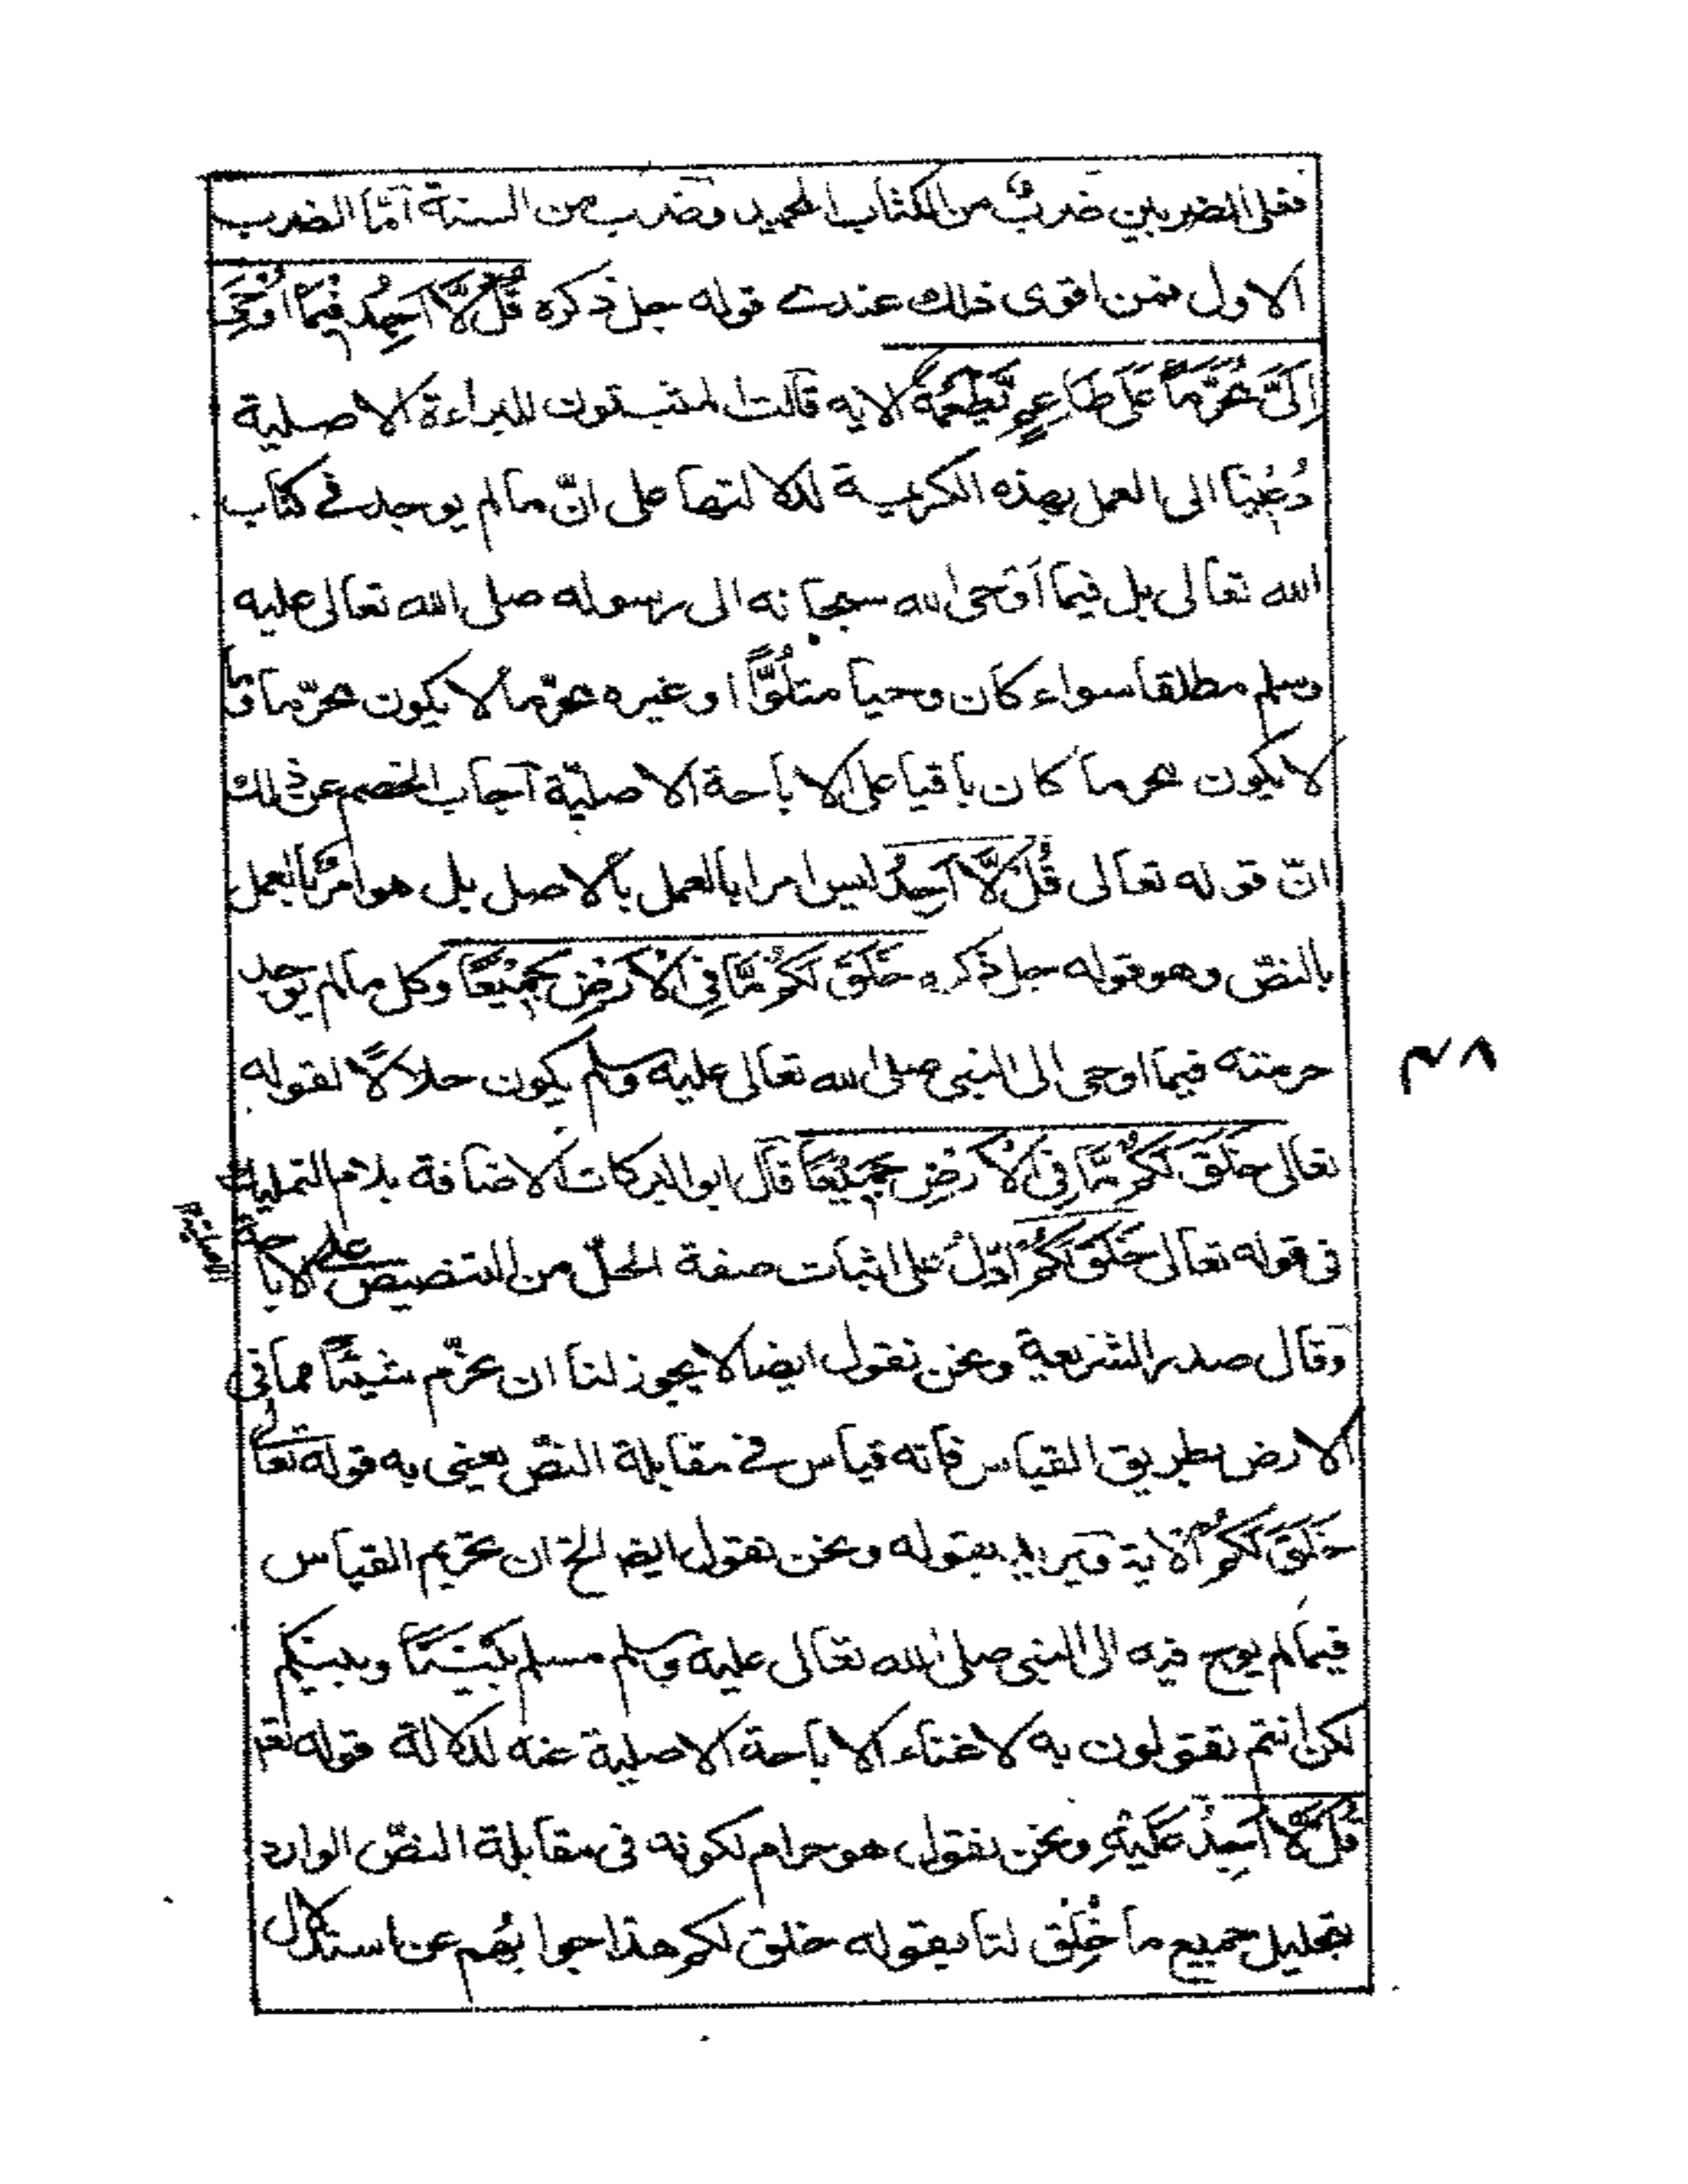 فعلى الضربين ضربٌ من الكتاب المجيد وضرب من السنة اَمّا الضرب
الاول فمن اقوى ذلك عندے قوله جل ذكره قُلْ لَّا اَجِدُ فِيْمَا اُوْحِیَ
اِلَیَّ مُحَرَّمًا عَلٰى طَاعِمٍ يَّطْعَمُهٗ الايه قالت المثبتون للبراءة الاصلية
دُعِينا الى العمل بهذه الكريمية لدلالتها على انّ مالم يوجد فے كتاب
الله تعالى بل فيما اَوْحى الله سبحانه الى رسوله صلى الله تعالى عليه
وسلم مطلقا سواء كان وحيا متلُوًّا او غيره محرّما لا يكون محرّما وما
لا يكون محرما كان باقيا على الاباحة الاصليّة آجاب الخصم عن ذلك
انّ قوله تعالى قُلْ لَّا اَجِدُ ليس امرا بالعمل بالاصل بل هو امرٌ بالعمل
بالنصّ وهو قوله جل ذكره خَلَقَ لَكُمْ مَّا فِي الْاَرْضِ جَمِيْعًا وكل مالم يوجد
حرمته فيما اوحى الى النبى صلى الله تعالى عليه وسلم يكون حلالًا لقوله
تعالى خَلَقَ لَكُمْ مَّا فِي الْاَرْضِ جَمِيْعًا قال ابو البركات الاضافة بلام التمليك
فى قوله تعالى خَلَقَ لَكُمْ اَدَلُّ على اثبات صفة الحلّ من التنصيص على الاباحة
وقال صدر الشريعة ونحن نقول ايضا لا يجوز لنا ان نحرّم شيئًا مما فى
الارض بطريق القياس فانه قياس فے مقابلة النصّ يعنى به قوله تعالى
خَلَقَ لَكُمْ الاٰية ويريد بقوله ونحن نقول ايضا الخ ان تحريم القياس
فيما لم يوح فيه الى النبى صلى الله تعالى عليه وسلم مسلم بَيْنَنَا وبينكم
لكن انتم تقولون به لاغناء الاباحة الاصلية عنه لدلالة قوله تعم
قُلْ لَّا اَجِدُ عَلَيْهِ ونحن نقول هو حرام لكونه فى مقابلة النصّ الوارد
بتحليل جميع ما خُلِق لنا بقوله خلق لكم هذا جوابهُم عن استدلال
٤٨